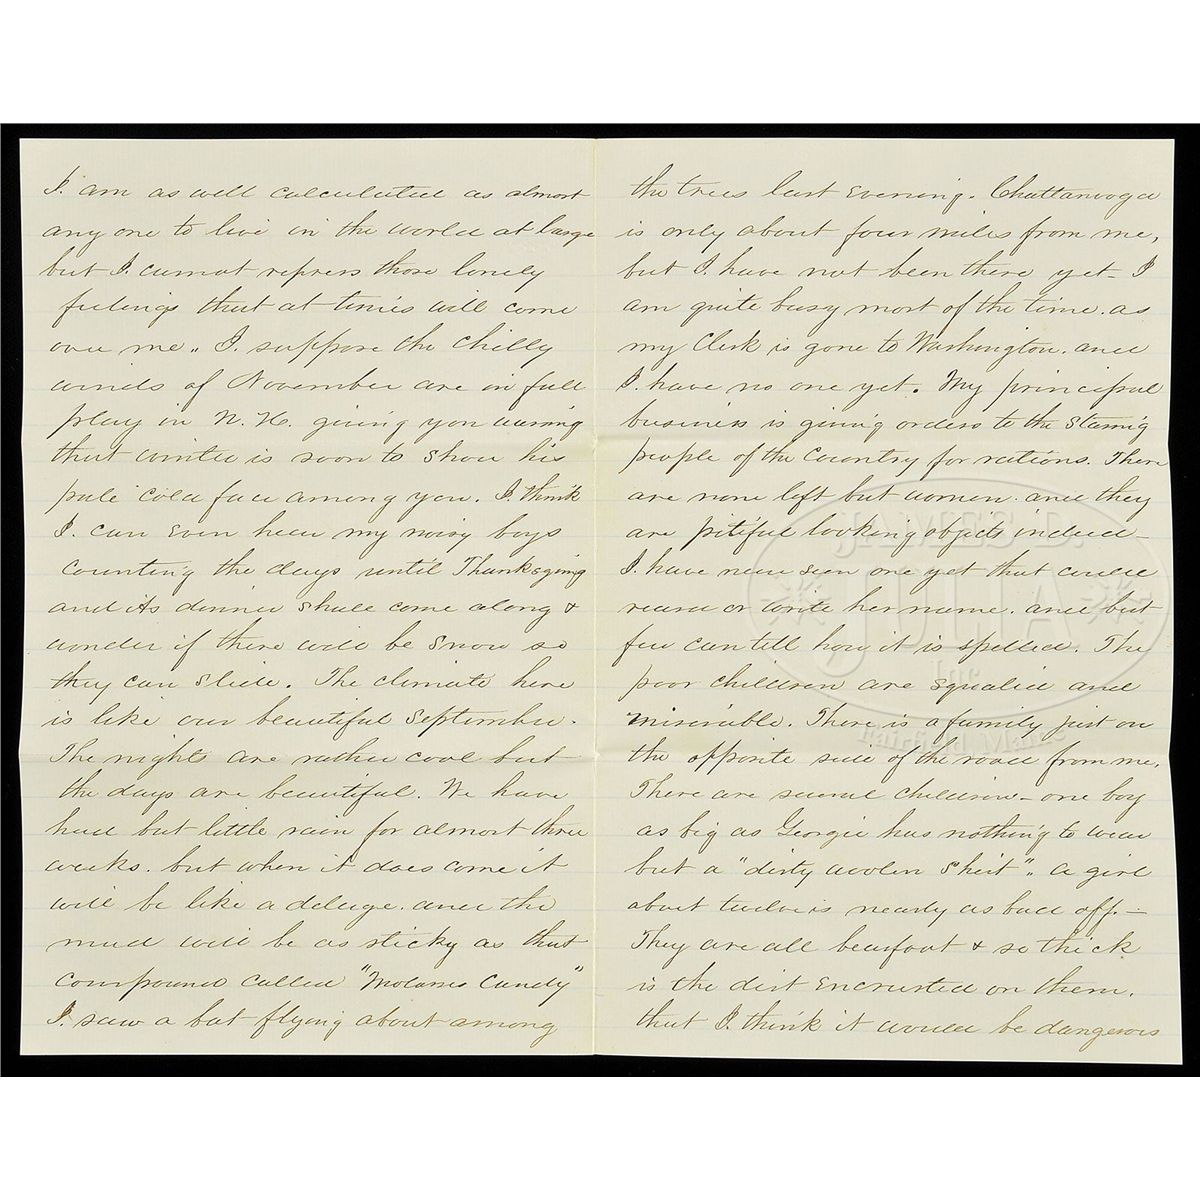 I. am as well calculated as almost
any one to live in the world at large
but I. cannot repress those lonely
feelings that at times will come
over me. I. suppose the Chilly
winds of November are in full
play in N. H. giving you warning
that winter is soon to show his
pale cold face among you. I. think
I. can even hear my noisy boys
counting the days until Thanksgiving
and its dinner shall come along &
wonder if there will be snow so
they can slide. The climate here
is like our beautiful September.
The nights are rather cool but
the days are beautiful. We have
had but little rain for almost three
weeks. but when it does come it
will be like a deluge. and the
mud will be as sticky as that
compound called "Molasses Candy"
I. saw a bat flying about among
the trees last evening. Chattanooga
is only about four miles from me,
but I have not been there yet - I
am quite busy most of the time. as
my Clerk is gone to Washington. and
I. have no one yet. My principal
business is giving orders to the starving
people of the country for rations. There
are none left but women. and they
are pitiful looking objects indeed -
I. have never seen one yet that could
read or write her name. and but
few can tell how it is spelled. The
poor children are squalid and
miserable. There is a family just on
the opposite side of the road from me.
There are several children - one boy
as big as Georgie has nothing to wear
but a "dirty woolen shirt". a girl
about twelve is nearly as bad off. -
They are all bearfoot & so thick
is the dirt encrusted on them.
that I. think it would be dangerous
JAMES D.
JULIA
Inc.
Fairfield, Maine